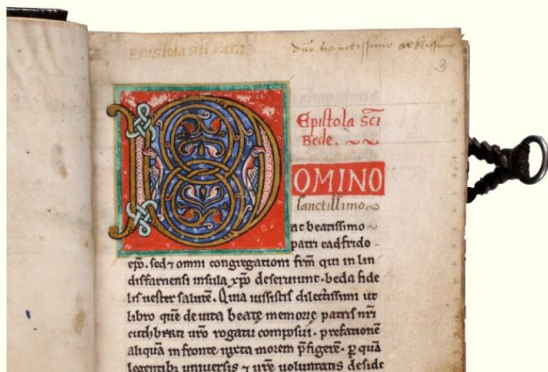 Epistola sci Bede
3
Epistola sci
Bede.
DOMINO
sanctissimo
ac beatissimo
patri eadfrido
epo. sed ⁊ omni congregationi frm̄ qui in lin
disfarnensi insula xpo deseruiunt. beda fide
lis uester salutē. Quia iussistis dilectissimi ut
libro quē de uita beatę memorię patris nr̄i
cuthberti uro rogatu composui. prefationē
aliquā in fronte iuxta morem p̄figerē. p̱ quā
legentibȝ uniuersis ⁊ ur̄e uoluntatis deside